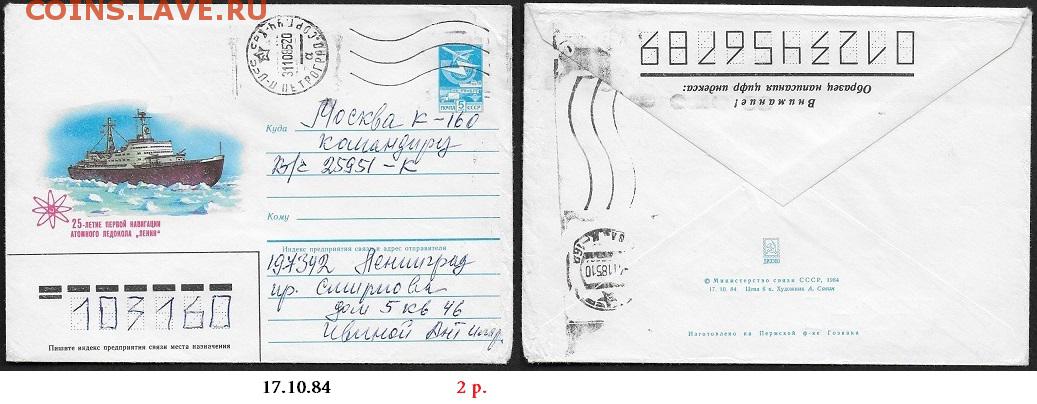 COINS.LAVE.RU
ПОЧТА 5 СССР
Куда
Москва К-160
Командиру
В/ч 25951-К
25-ЛЕТИЕ ПЕРВОЙ НАВИГАЦИИ
АТОМНОГО ЛЕДОКОЛА „ЛЕНИН“
Кому
Индекс предприятия связи и адрес отправителя
197342 Ленинград
пр. Смирнова
дом 5 кв 46
103160
Пишите индекс предприятия связи места назначения
0123456789
Образец написания цифр индекса:
Внимание!
© Министерство связи СССР, 1984
17.10.84 Цена 6 к. Художник А. Савин
Изготовлено на Пермской ф-ке Гознака
17.10.84
2 р.